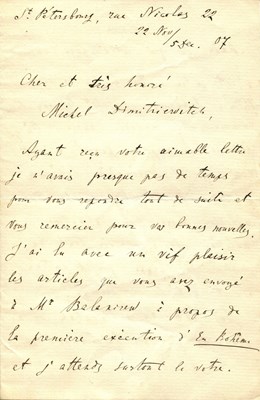 St Pétersbourg, rue Nicolas 22
22 Nov/
5 Dec. 07
Cher et très honoré
Michel Dimitriewitch,
Ayant reçu votre aimable letter
je n'avais presque pas de temps
pour vous repondre tout de suite et
vous remercier pour vos bonnes nouvelles.
J'ai lu avec un vif plaisir
les articles que vous avez envoyé
à Mr Balakirew à propos de
la première exécution d'En Bohême
et j'attends surtout le votre.